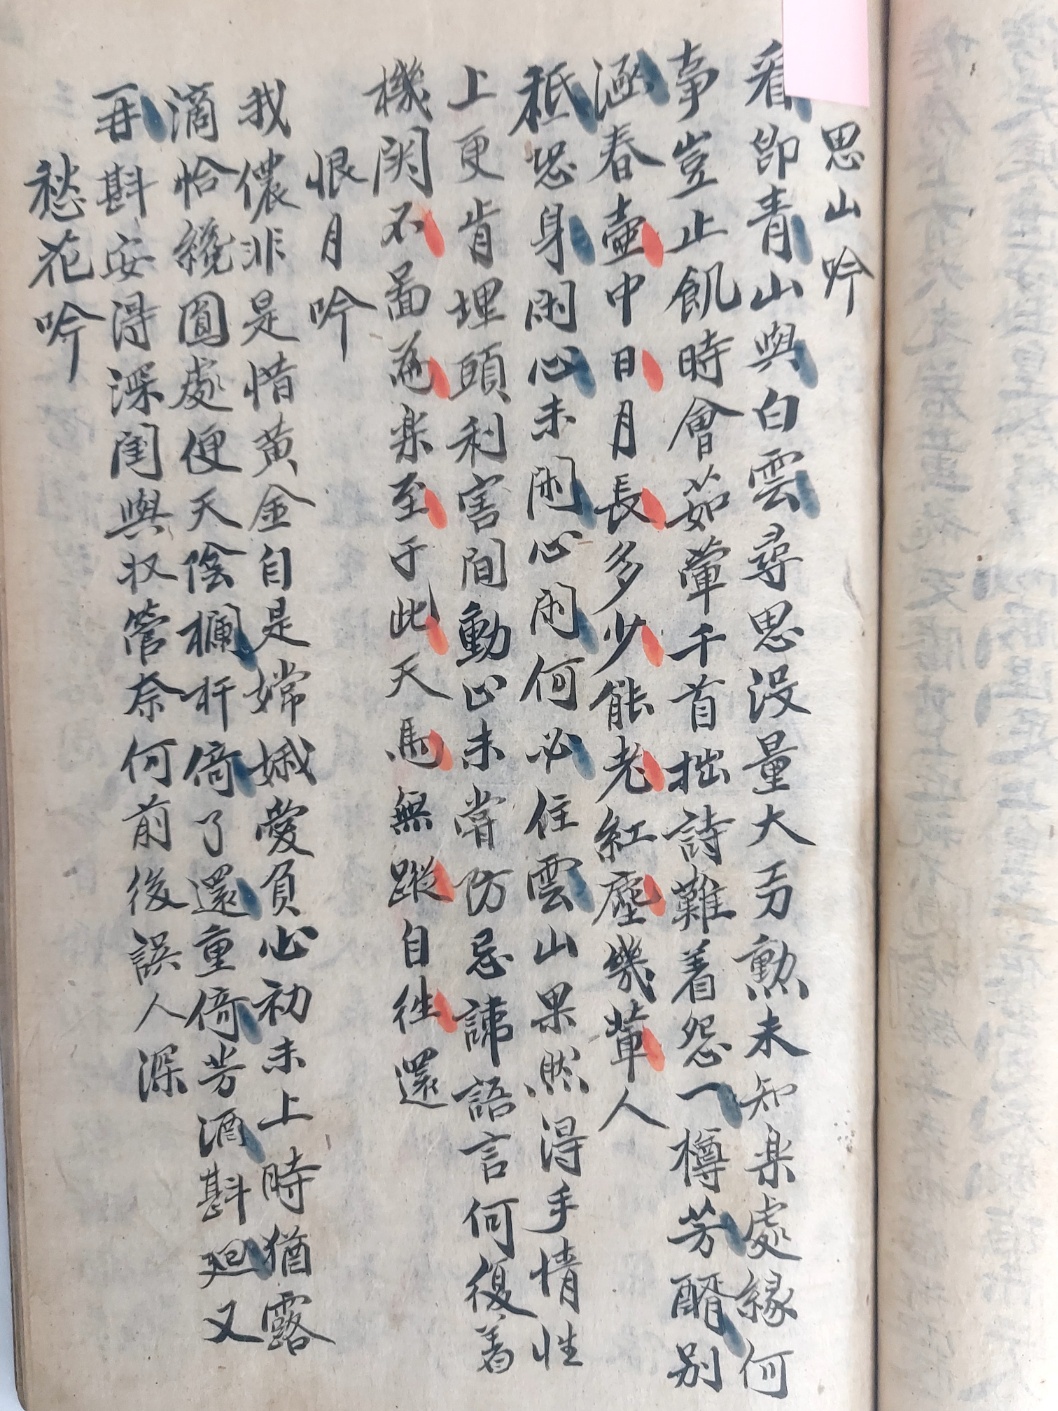 思山吟
看卽青山與白雲尋思没量大功勲未知楽處縁何
事豈止飢時會茹葷千首拙詩難着怨一樽芳醑别
涵春壷中日月長多少能老紅塵幾輩人
秪恐身閑心未閑心閑何必住雲山果然得手情性
上更肯埋頭利害間動止未甞防忌諱語言何復着
機関不啚為楽至于此天馬無蹤自徃還
恨月吟
我儂非是惜黄金自是嫦娥愛負心初未上時猶露
滴恰纔圓處便天陰欄杆倚了還重倚芳酒斟廻又
再斟安得深閨與收管奈何前後誤人深
愁花吟